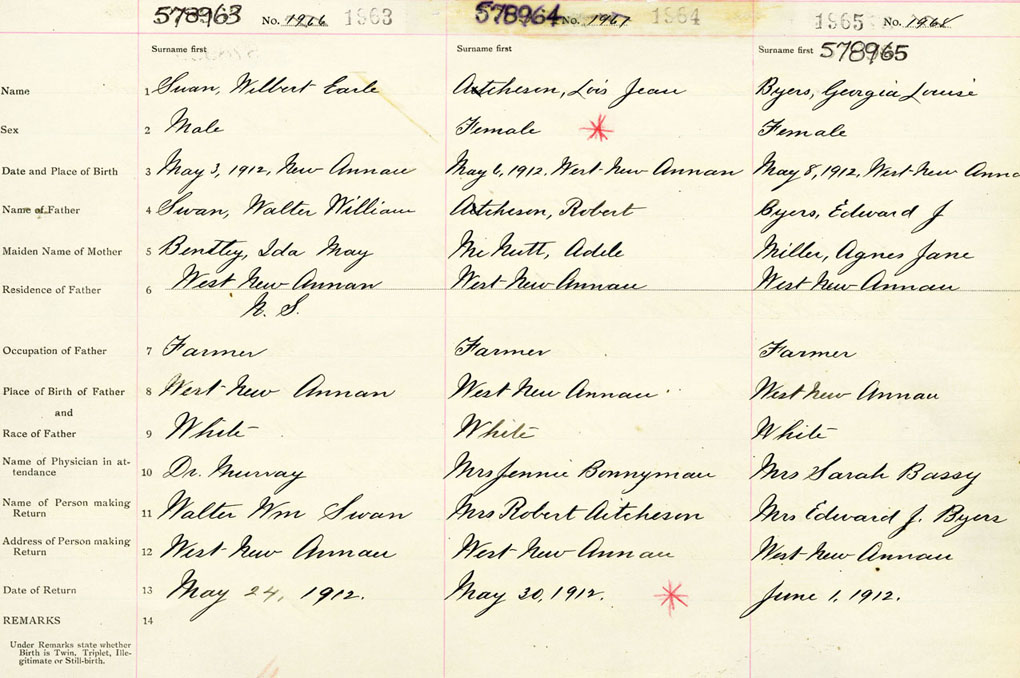 578963 No. 1966 1963 578964 No. 1967 1964 1965 No. 1968
578965
Surname first Surname first Surname first
Name 1 Swan, Wilbert Earle Aitcheson, Lois Jean Byers, Georgia Louise
Sex 2 Male Female Female
Date and Place of Birth 3 May 3, 1912, New Annan May 6, 1912, West New Annan May 8, 1912, West New Anna
Name of Father 4 Swan, Walter William Aitcheson, Robert Byers, Edward J
Maiden Name of Mother 5 Bentley, Ida May McNutt, Adele Miller, Agnes Jane
Residence of Father 6 West New Annan West New Annan West New Annan
N. S.
Occupation of Father 7 Farmer Farmer Farmer
Place of Birth of Father 8 West New Annan West New Annan West New Annan
and
Race of Father 9 White White White
Name of Physician in at-
tendance 10 Dr. Murray Mrs Jennie Bonnyman Mrs Sarah Bassy
Name of Person making
Return 11 Walter Wm Swan Mrs Robert Aitcheson Mrs Edward J. Byers
Address of Person making
Return 12 West New Annan West New Annan West New Annan
Date of Return 13 May 24, 1912. May 30, 1912. June 1, 1912.
REMARKS 14
Under Remarks state whether
Birth is Twin, Triplet, Ille-
gitimate or Still-birth.